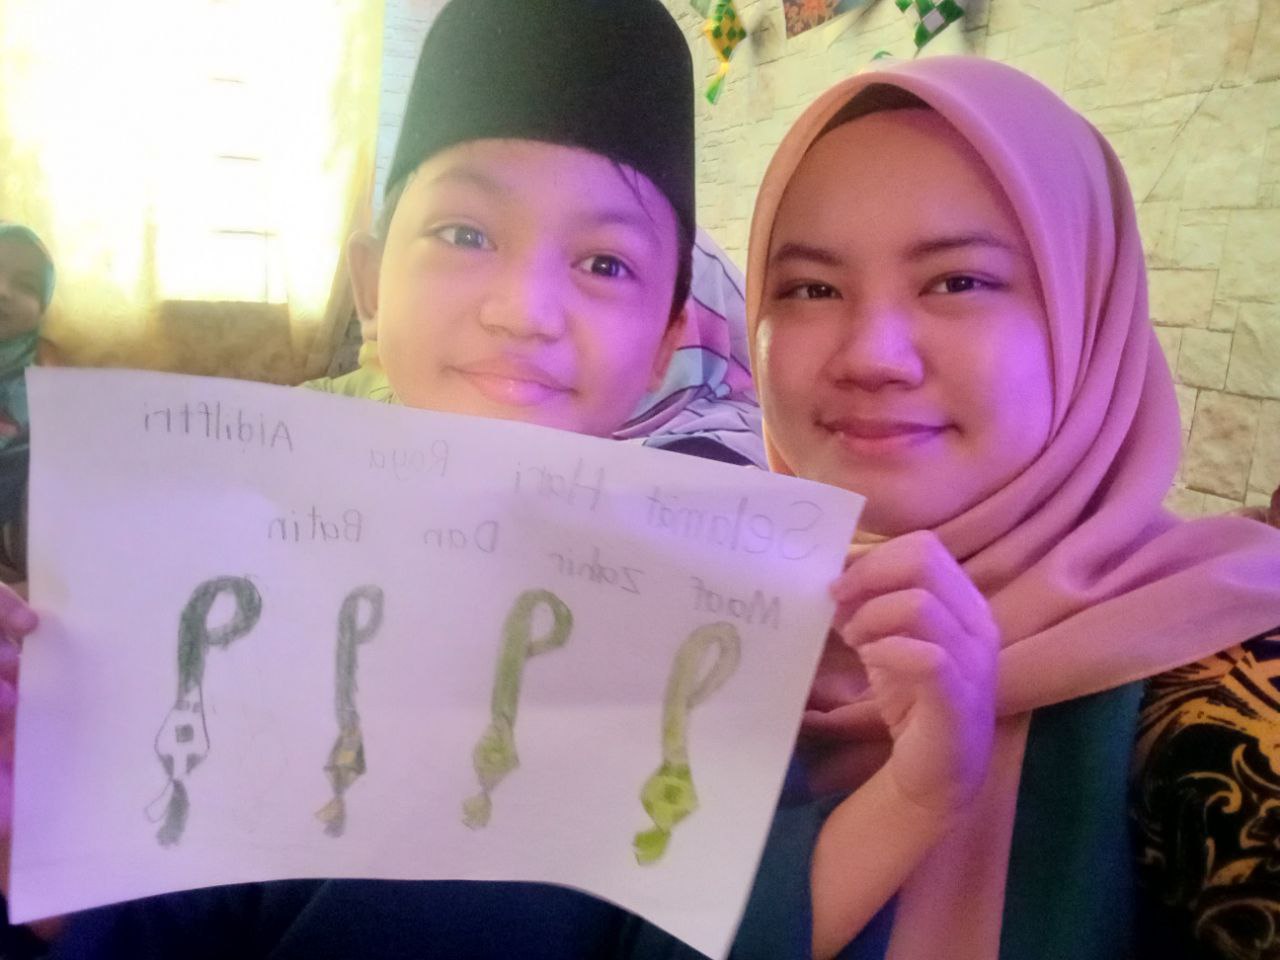 Selamat Hari Raya Aidilftri
Maaf zahir Dan Batin